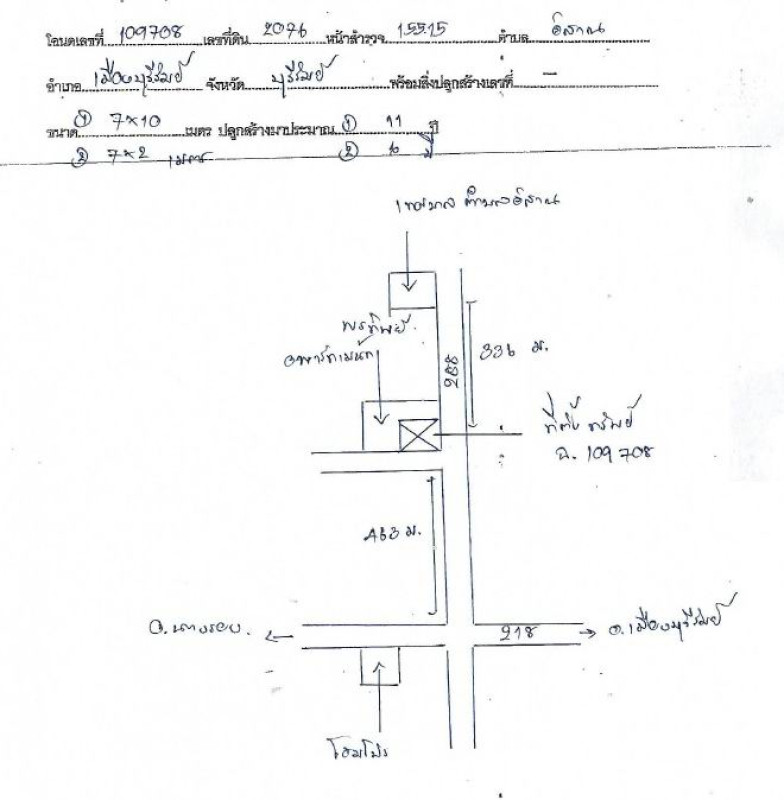 โฉนดเลขที่ 109708 เลขที่ดิน 2076 หน้าสำรวจ 15515 ตำบล อิสาณ
อำเภอ เมืองบุรีรัมย์ จังหวัด บุรีรัมย์ พร้อมสิ่งปลูกสร้างเลขที่ -
ขนาด ① 7×10 เมตร ปลูกสร้างมาประมาณ ① 11 ปี
② 7×2 เมตร ② 6 ปี
เทศบาล ตำบลอิสาณ
พรทิพย์
อพาร์ทเมนท์
288
336 ม.
ที่ตั้งทรัพย์
ฉ. 109708
463 ม.
อ.นางรอง
218
อ.เมืองบุรีรัมย์
โฮมโปร